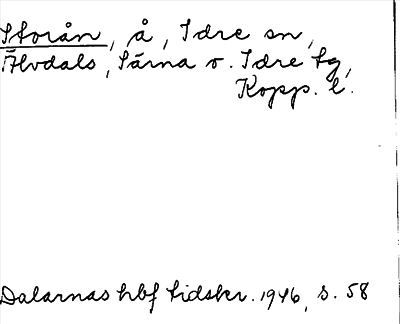 Storån, å, Idre sn,
Älvdals, Särna o. Idre tg,
Kopp. l.
Dalarnas hbf tidskr. 1946, s. 58